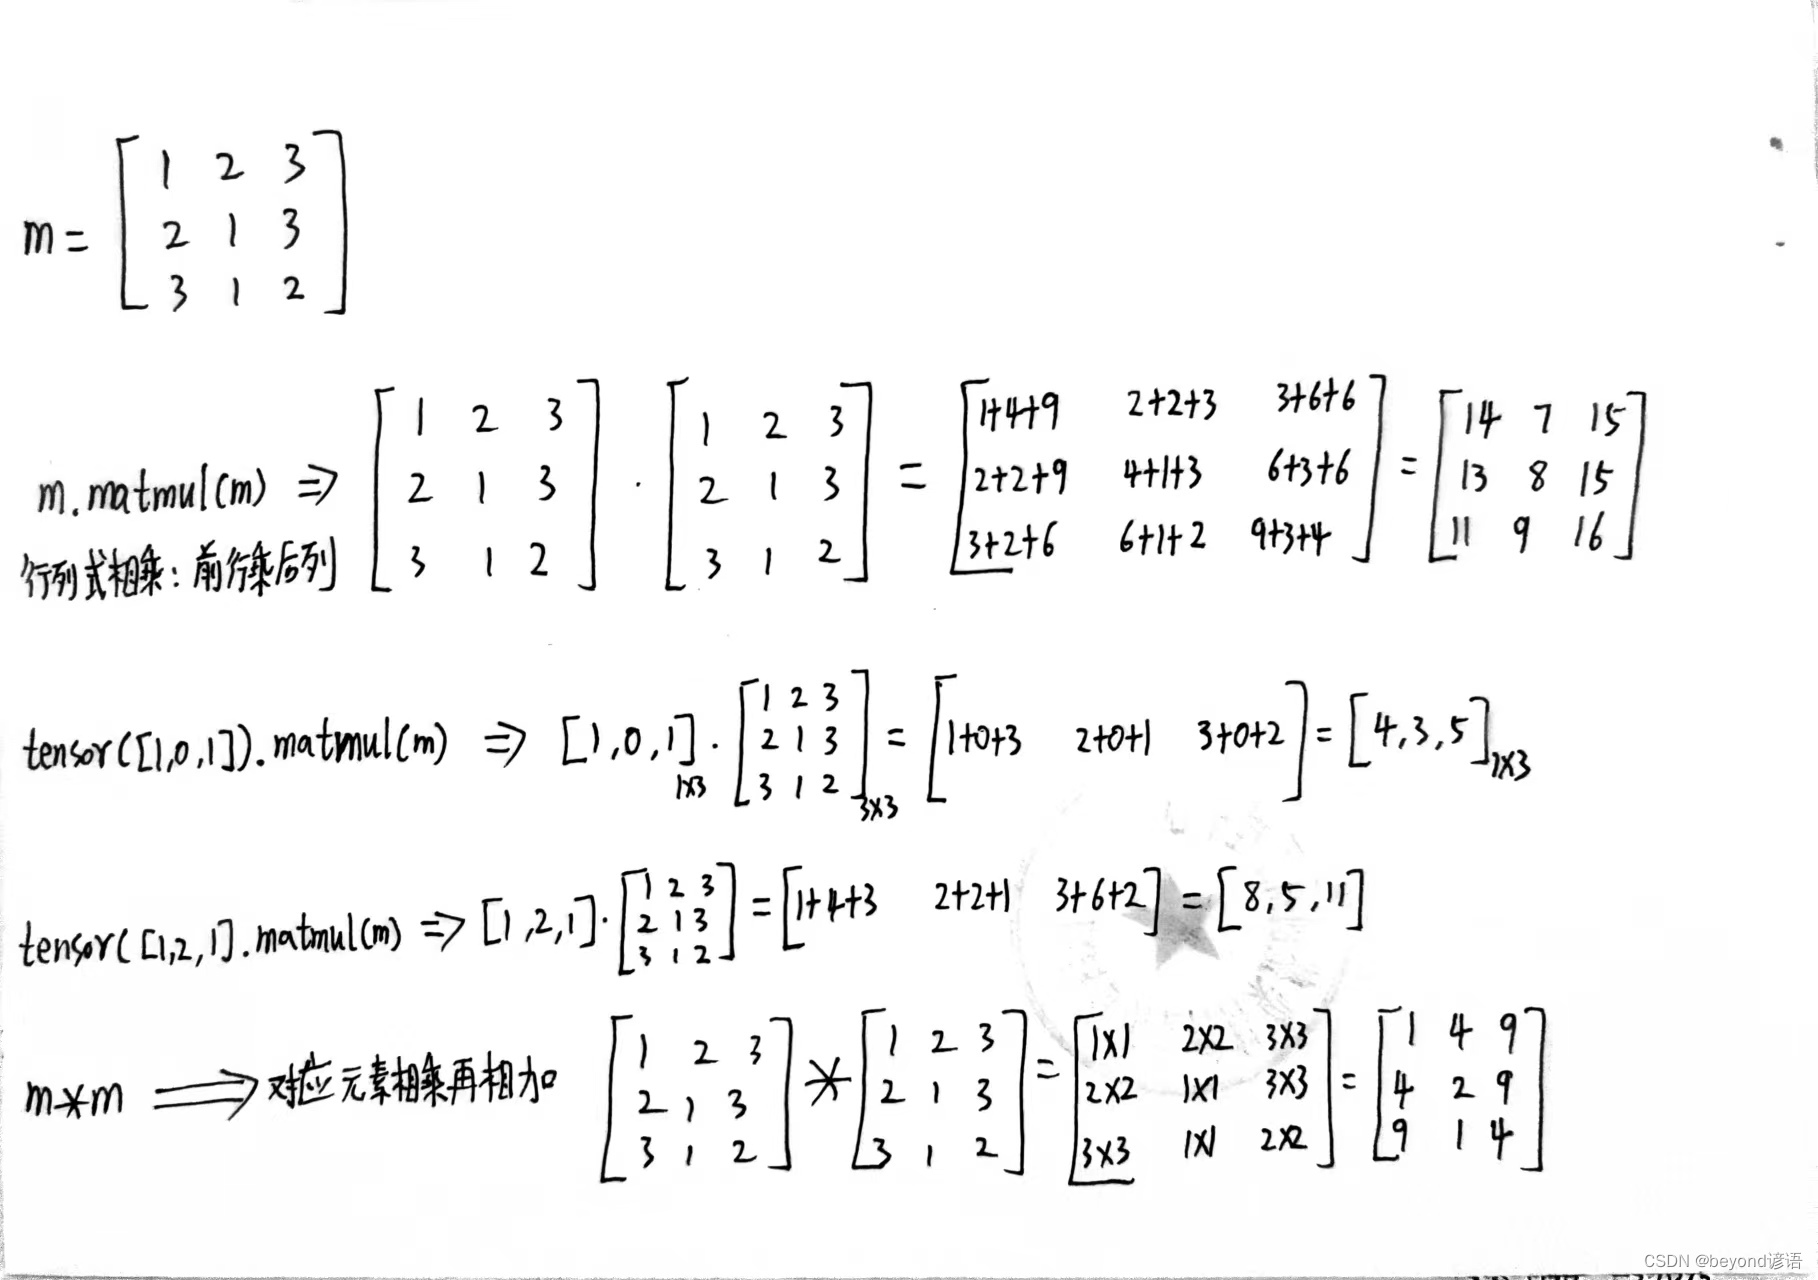 m = [1 2 3
2 1 3
3 1 2]
m.matmul(m) ⇒ [1 2 3 2 1 3 3 1 2] · [1 2 3 2 1 3 3 1 2] = [1+4+9 2+2+3 3+6+6 2+2+9 4+1+3 6+3+6 3+2+6 6+1+2 9+3+4] = [14 7 15 13 8 15 11 9 16]
行列式相乘: 前行乘后列
tensor([1,0,1]).matmul(m) ⇒ [1,0,1]1X3 · [1 2 3 2 1 3 3 1 2]3X3 = [1+0+3 2+0+1 3+0+2] = [4,3,5]1X3
tensor([1,2,1].matmul(m) ⇒ [1,2,1] · [1 2 3 2 1 3 3 1 2] = [1+4+3 2+2+1 3+6+2] = [8,5,11]
m*m ⇒ 对应元素相乘再相加 [1 2 3 2 1 3 3 1 2] * [1 2 3 2 1 3 3 1 2] = [1X1 2X2 3X3 2X2 1X1 3X3 3X3 1X1 2X2] = [1 4 9 4 2 9 9 1 4]
CSDN @beyond谚语